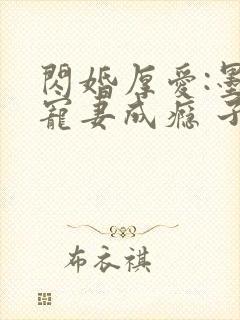 閃婚厚愛:墨
寵妻成癮 子
布衣祺